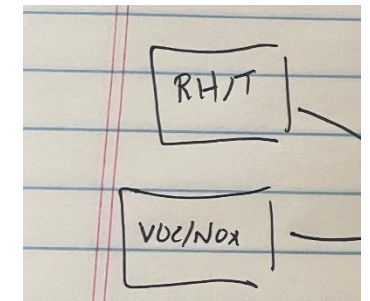 RH/T
VOC/NOx